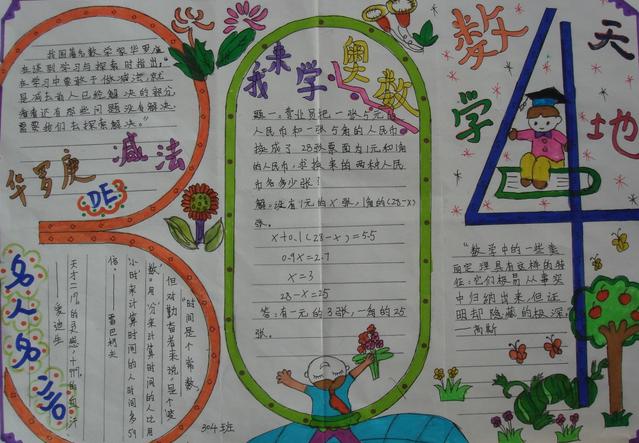 我国著名数学家华罗庚
在谈到学习与探索时指出：“
在学习中要敢于做减法，就
是减去前人已经解决的部分，
看看还有那些问题没有解决，
需要我们去探索解决。”
华罗庚
DE
减法
名人名言
天才=1%的灵感,+99%的血汗
——爱迪生
“时间是个常数,
但对勤奋者来说,是个‘变
数’。用‘分’来计算时间的人比用
‘小时’来计算时间的人时间多59
倍。”
——雷巴柯夫
304班
我来学奥数
题一、营业员把一张5元的
人民币和一张5角的人民币
换成了28张票面为1元和1角
的人民币，求换来的两种人民
币各多少张？
解：设有1元的x张，1角的(28-x)
张。
x+0.1(28-x)=5.5
0.9x=2.7
x=3
28-x=25
答：有一元的3张，一角的25
张。
数学天地
“数学中的一些美
丽定理具有这样的特
征：它们极易从事实
中归纳出来，但证
明却隐藏的极深。
——高斯